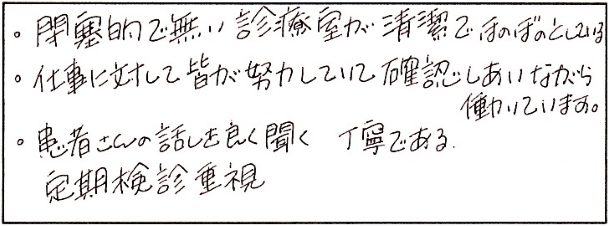 。閉塞的で無い 診療室が清潔でほのぼのとしている
。仕事に対して皆が努力していて確認しあいながら
働いています。
。患者さんの話しを良く聞く 丁寧である.
定期検診重視